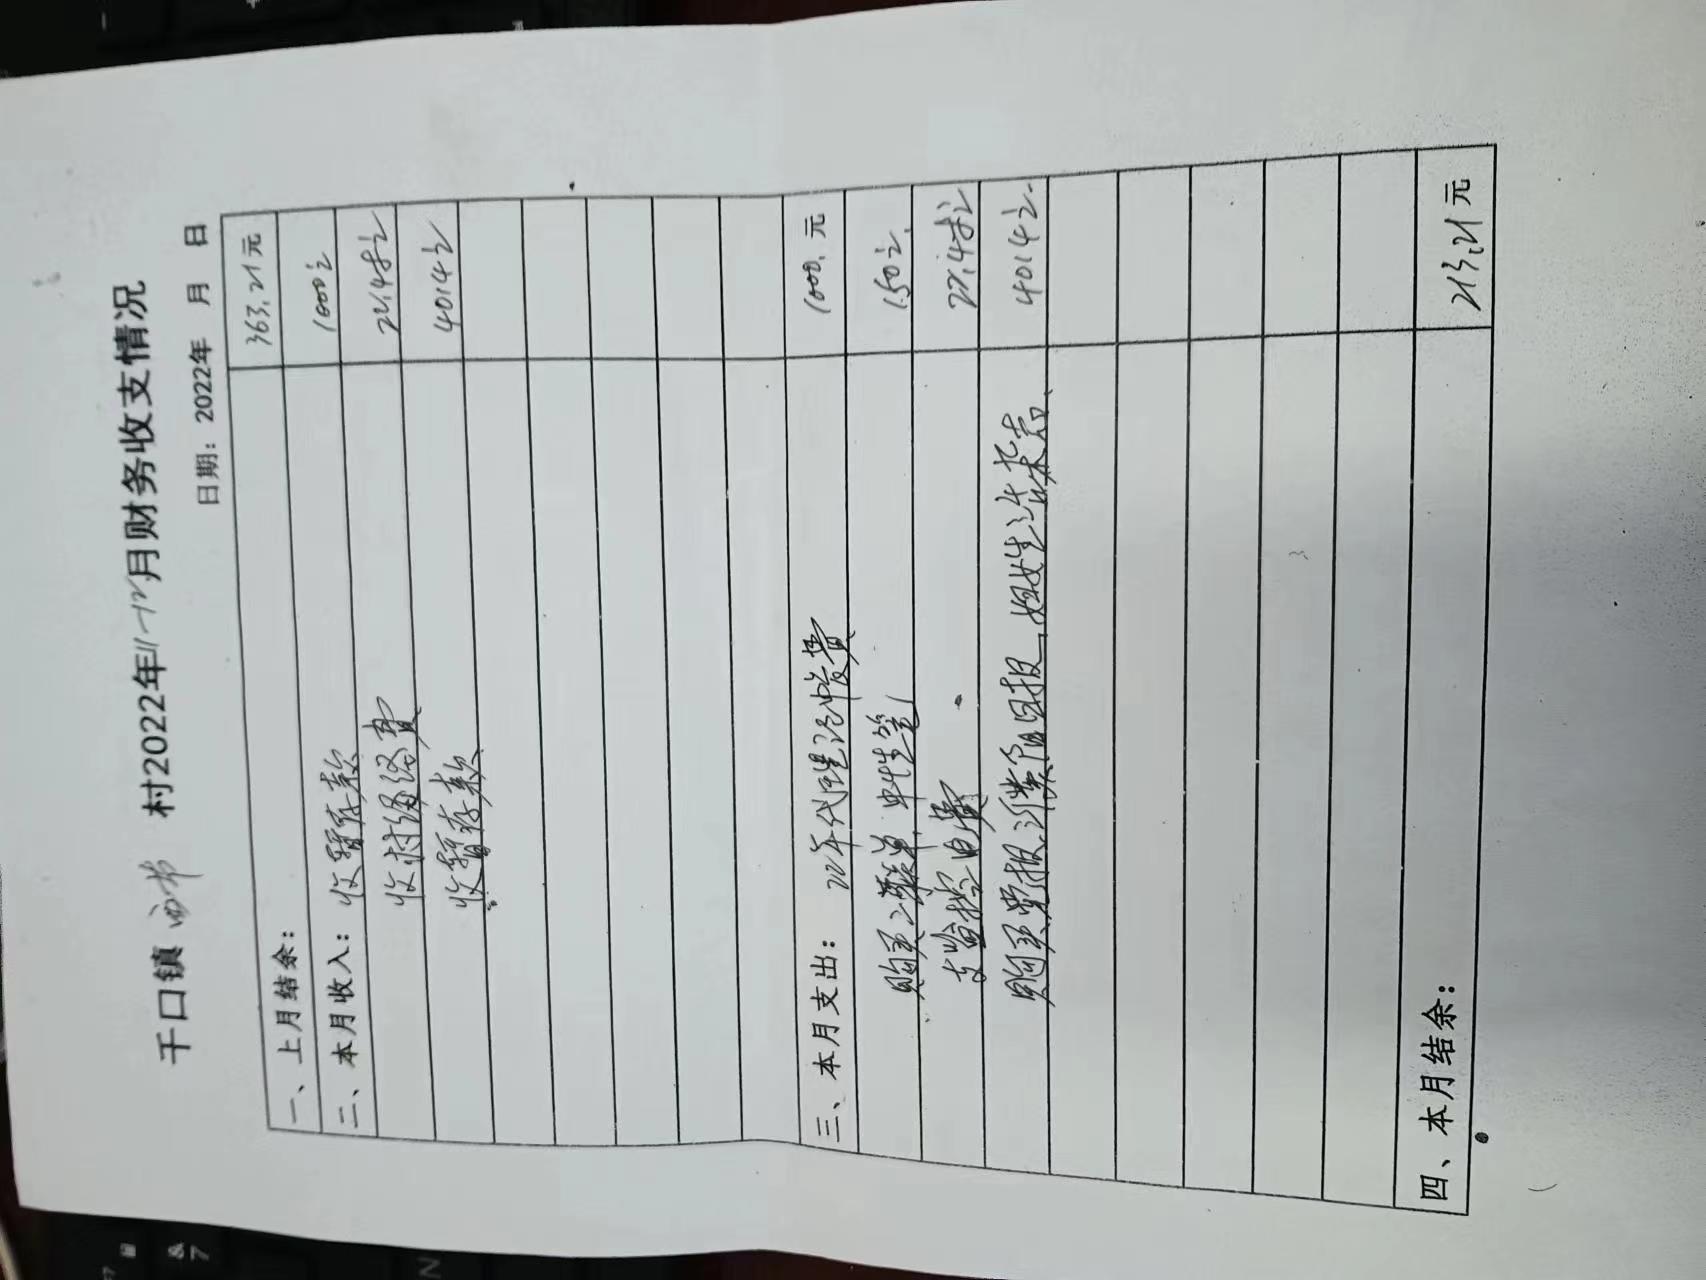 千口镇 西节 村2022年11-12月财务收支情况
日期：2022年 月 日
一、上月结余： 363.21元
二、本月收入： 收暂存款 1000元
收村经费 22.48元
收暂存款 4014元
三、本月支出： 22年代理记账费 1000.元
购买三联单、中性笔 150元.
支监控电费 22.48元
购买党报、濮阳日报、妇女生活杂志、 4014元.
四、本月结余： 213.21元